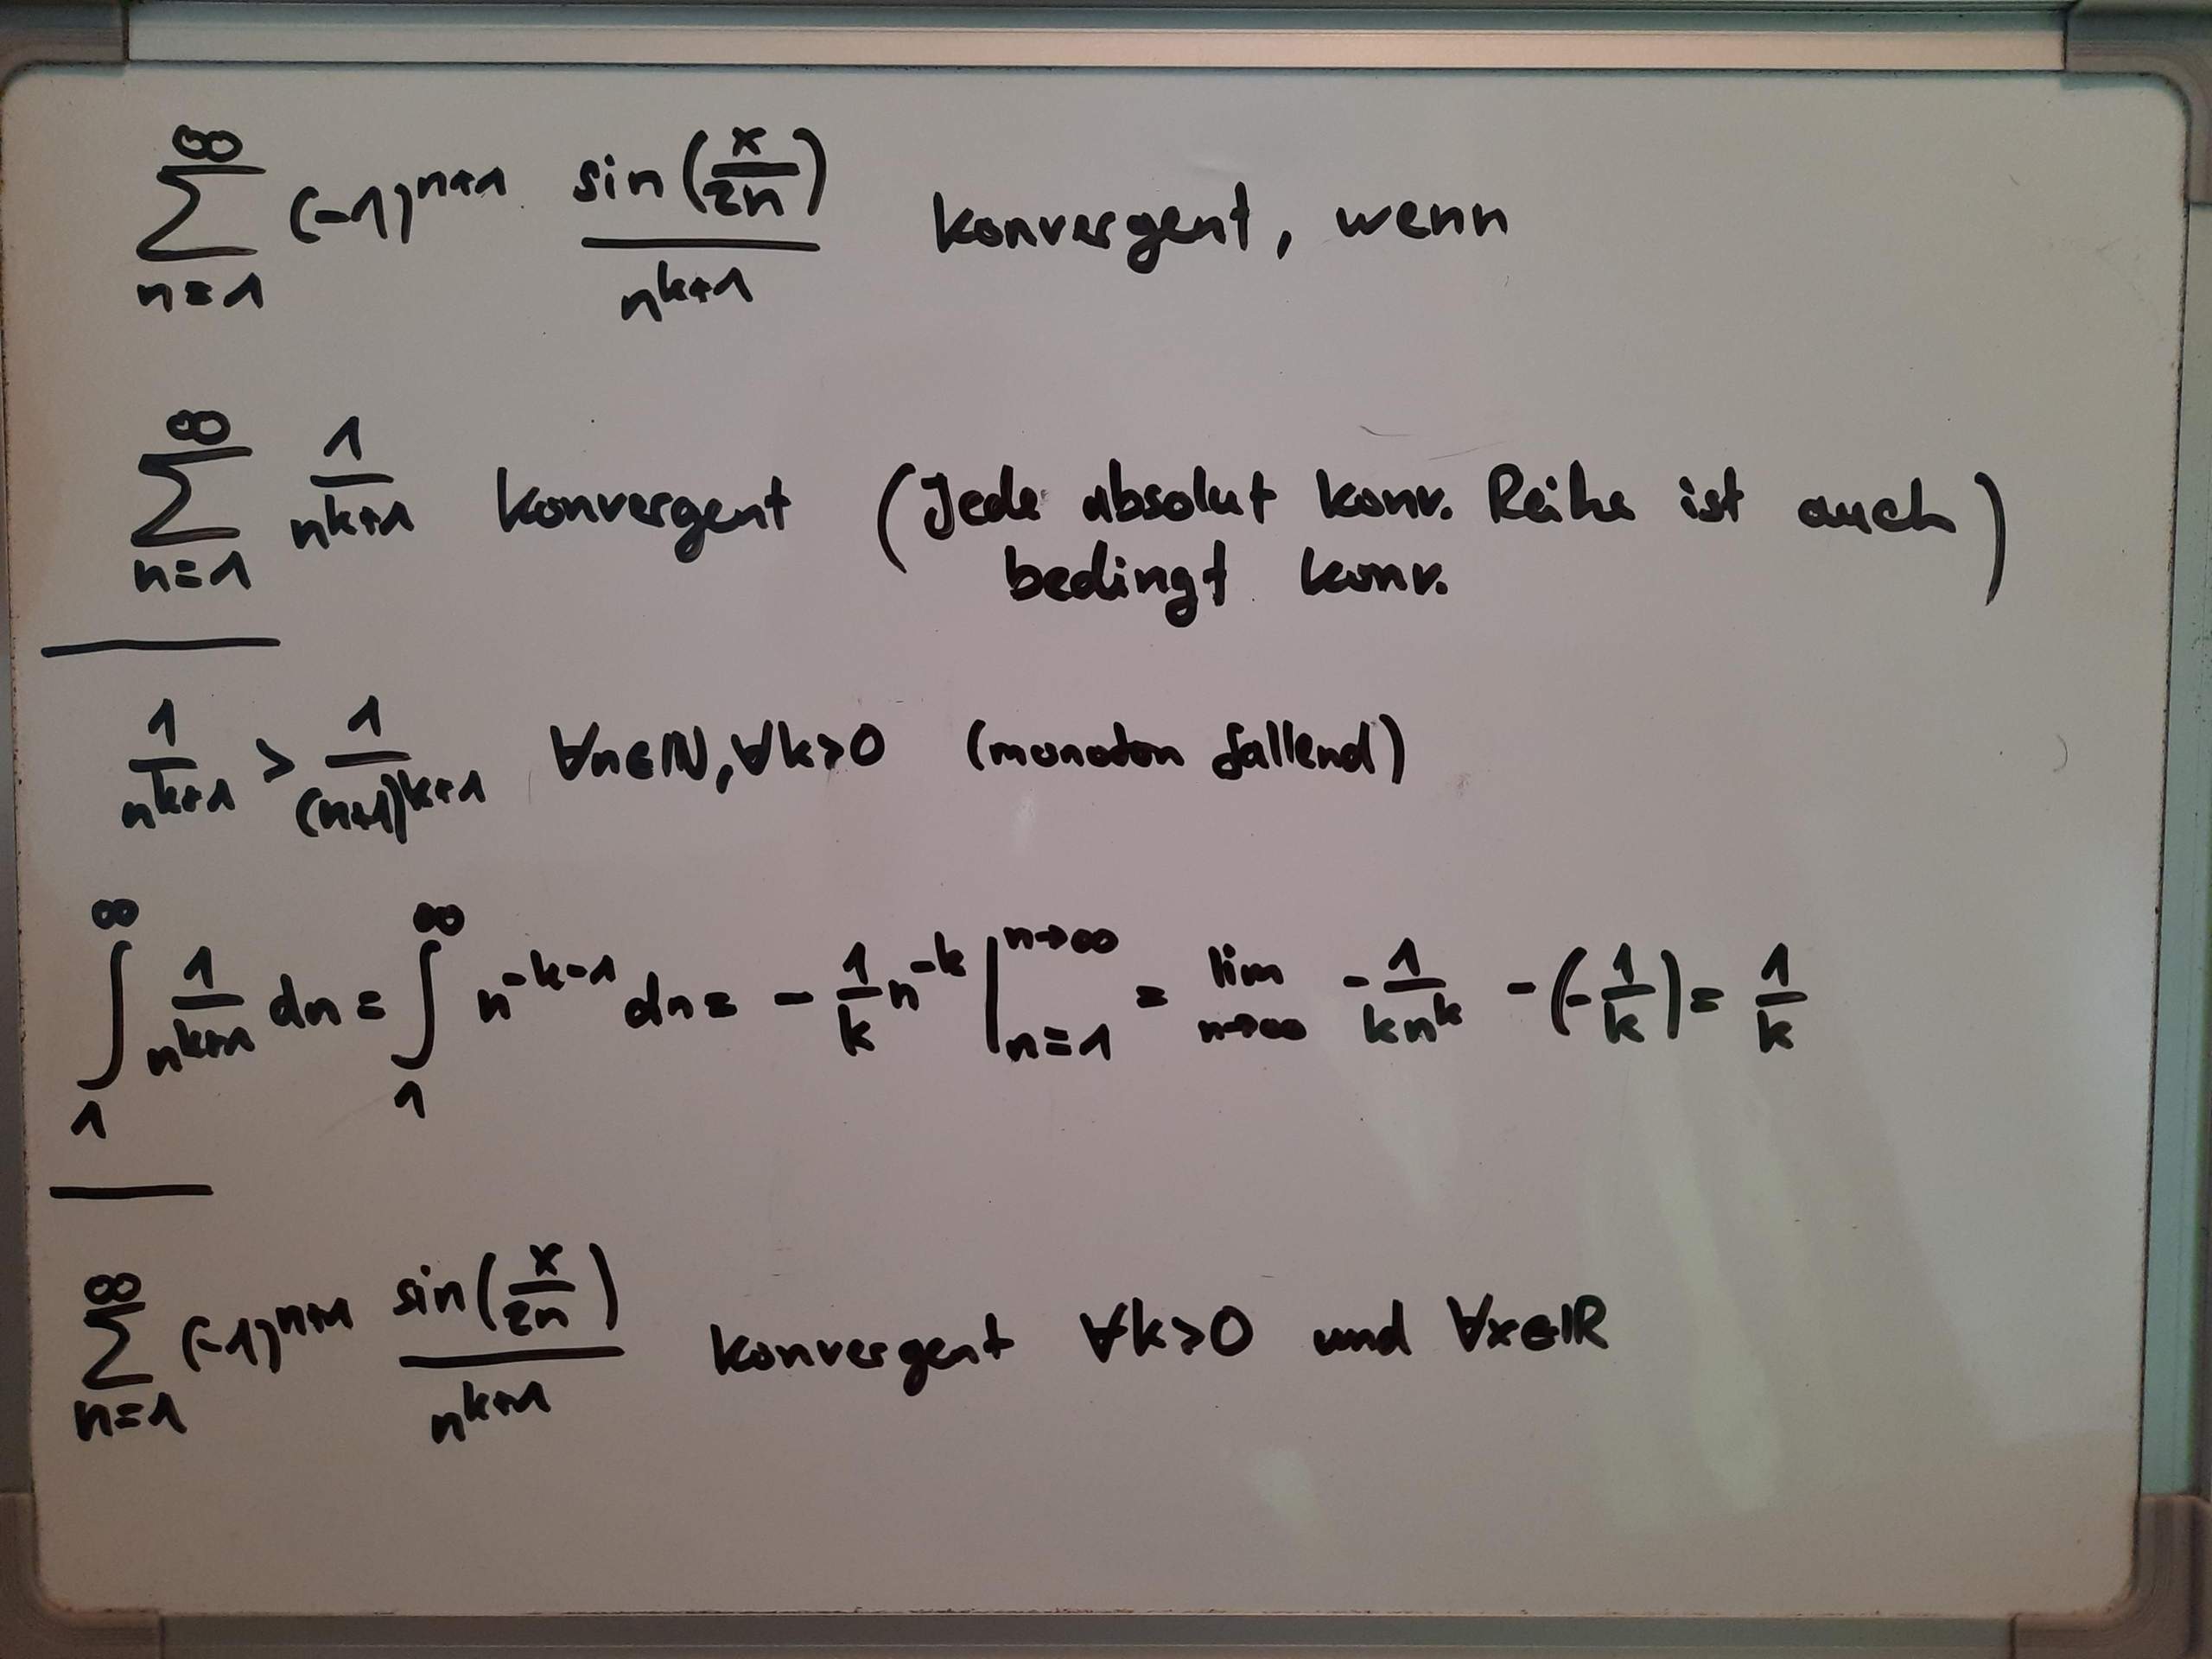 ∞∑n=1 (-1)^{n+1} · sin(x/2n) / n^{k+1} konvergent, wenn
∞∑n=1 1/n^{k+1} konvergent (Jede absolut konv. Reihe ist auch
bedingt konv.)
1/n^{k+1} > 1/(n+1)^{k+1} ∀n∈ℕ, ∀k>0 (monoton fallend)
∫_1^∞ 1/n^{k+1} dn = ∫_1^∞ n^{-k-1} dn = - 1/k n^{-k} |_{n=1}^{n→∞} = lim_{n→∞} - 1/(kn^k) - (- 1/k) = 1/k
∞∑n=1 (-1)^{n+1} sin(x/2n) / n^{k+1} konvergent ∀k>0 und ∀x∈ℝ